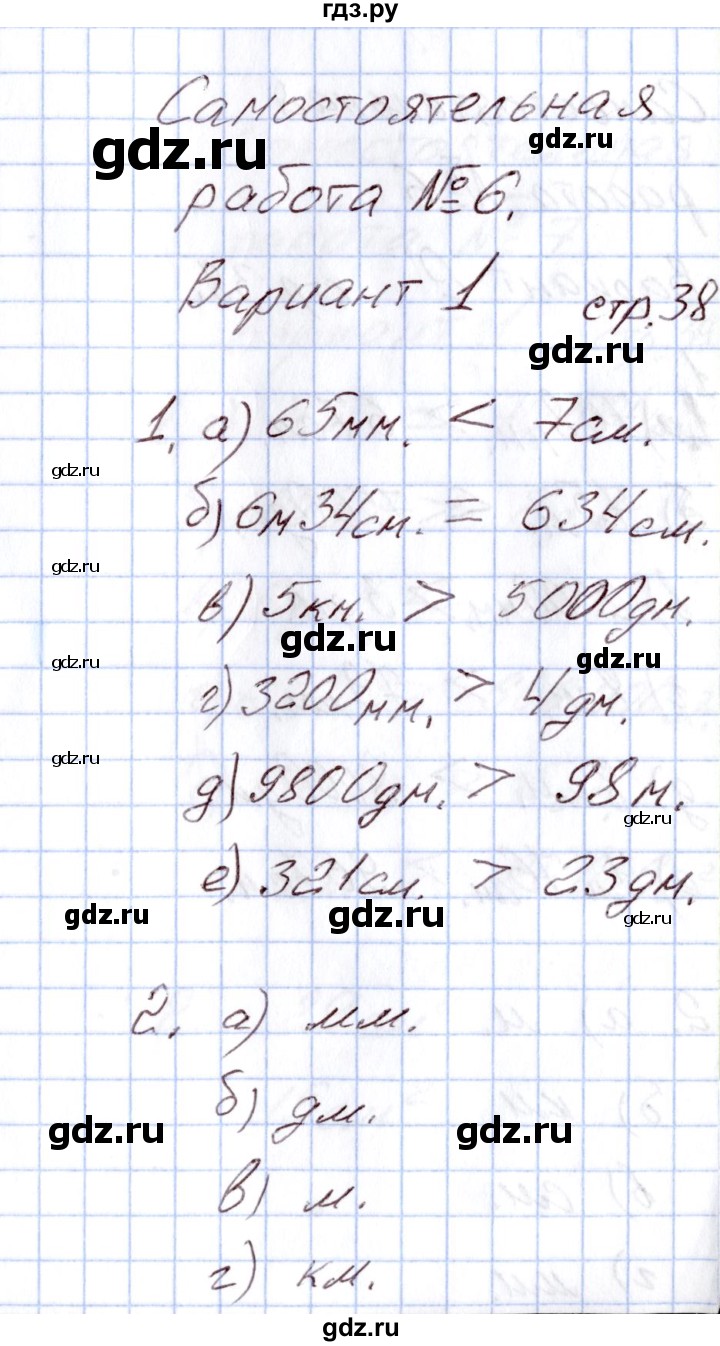 гдз.ру
Самостоятельная
gdz.ru
gdz.ru
работа №6.
Вариант 1 стр.38
gdz.ru
1. а) 65мм. < 7см.
gdz.ru
б) 6м34см. = 634см.
gdz.ru
в) 5км. > 5000дм.
gdz.ru
gdz.ru
gdz.ru
г) 3200мм. > 4дм.
gdz.ru
д) 9800дм. > 98м.
gdz.ru
е) 321см. > 23дм.
gdz.ru
gdz.ru
gdz.ru
2. а) мм.
б) дм.
gdz.ru
gdz.ru
в) м.
г) км.
gdz.ru